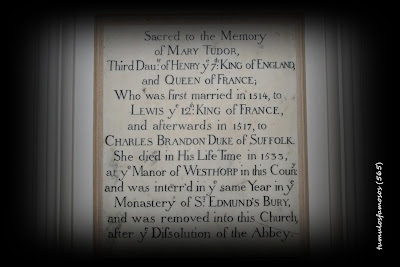 Sacred to the Memory
of MARY TUDOR,
Third Dau: of HENRY yᵉ 7:ᵗʰ KING of ENGLAND,
and QUEEN of FRANCE;
Who was first married in 1514, to
LEWIS yᵉ 12:ᵗʰ KING of FRANCE,
and afterwards in 1517, to
CHARLES BRANDON DUKE of SUFFOLK.
She died in His Life Time in 1533,
at yᵉ Manor of WESTHORP in this Coun:
and was interr'd in yᵉ same Year in yᵉ
Monastery of Sᵗ EDMUND'S BURY,
and was removed into this Church,
after yᵉ Dissolution of the Abbey:
tumulosfamosos (565)